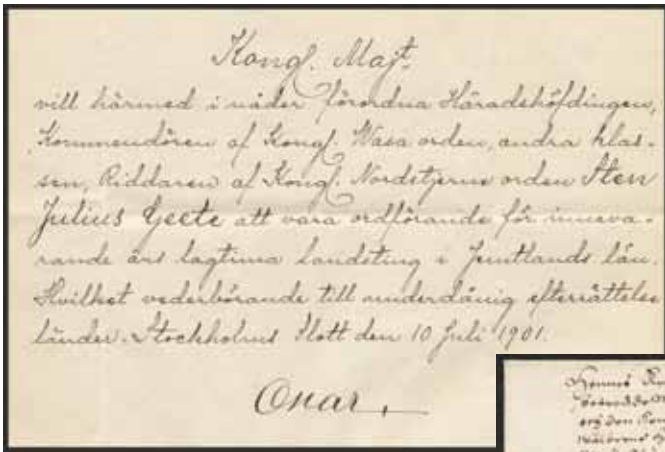 Kongl. Majt.
vill härmed i nåder förordna Häradshöfdingen,
Kommendören af Kongl. Wasa orden, andra klas-
sen, Riddaren af Kongl. Nordstjerne orden Sten
Julius Geete att vara ordförande för inneva-
rande års lagtima landsting i Jemtlands län.
Hvilket vederbörande till underdånig efterrättelse
länder. Stockholms Slott den 10 Juli 1901.
Oscar.